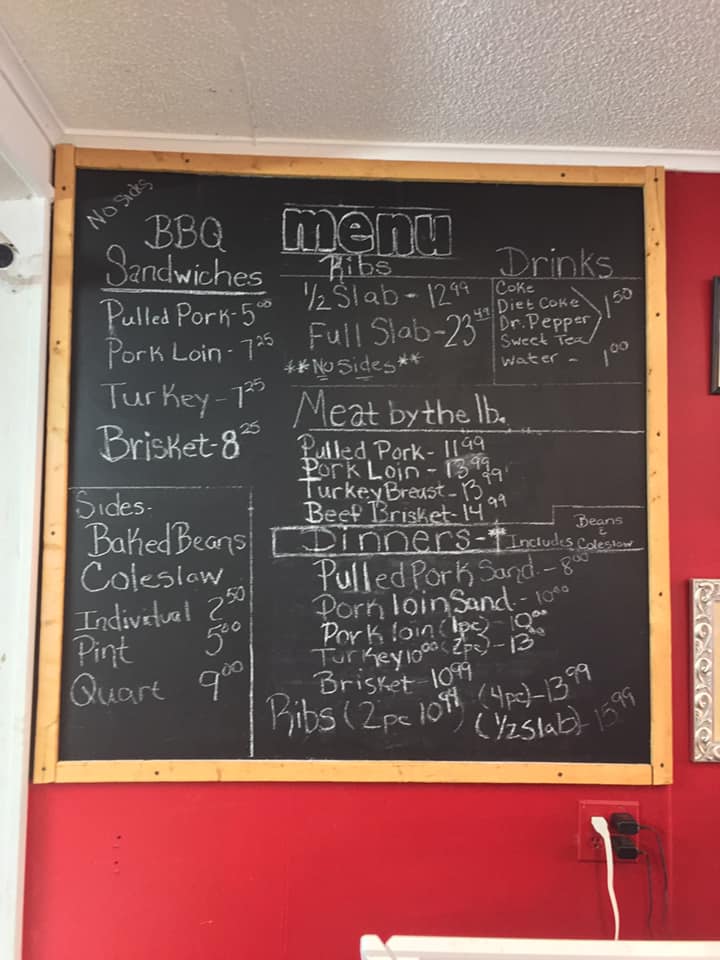 No Sides
BBQ
Sandwiches
Pulled Pork - 5.00
Pork Loin - 7.25
Turkey - 7.25
Brisket - 8.25
Sides -
Baked Beans
Coleslaw
Individual 2.50
Pint 5.00
Quart 9.00
menu
Ribs
1/2 Slab - 12.99
Full Slab - 23.49
**No Sides**
Drinks
Coke
Diet Coke
Dr. Pepper
Sweet Tea
1.50
Water - 1.00
Meat by the lb.
Pulled Pork - 11.99
Pork Loin - 13.99
Turkey Breast - 13.99
Beef Brisket - 14.99
Dinners - * Includes Beans & Coleslaw
Pulled Pork Sand - 8.00
Pork loin Sand - 10.00
Pork loin (1pc) - 10.00
Turkey 10.00 (2pc) - 13.00
Brisket - 10.99
Ribs (2pc 10.99) (4pc) - 13.99
(1/2 Slab) - 15.99